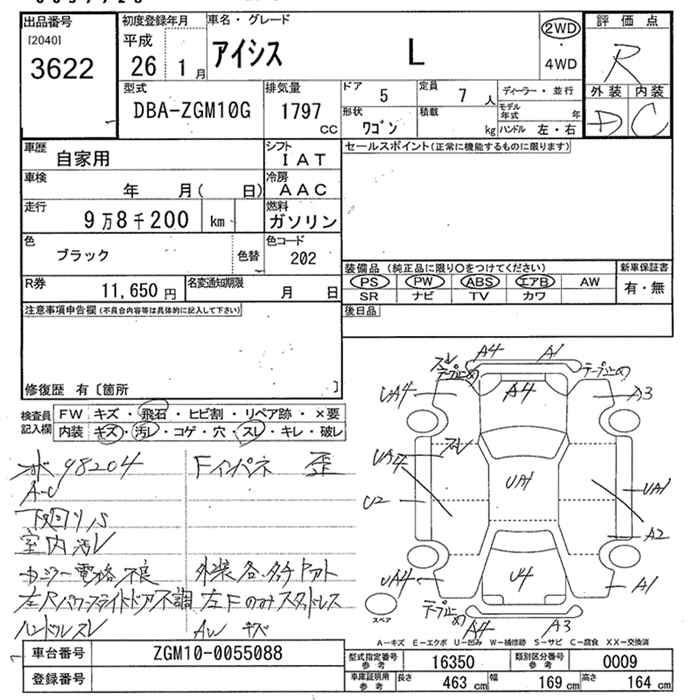 出品番号
[2040]
3622
初度登録年月
平成
26 1月
車名・グレード
アイシス L
2WD
・
4WD
評価点
R
外装 内装
D C
型式
DBA-ZGM10G
排気量
1797
cc
ドア
5
定員
7人
ディーラー・並行
モデル年式 年
形状
ワゴン
積載
kg
ハンドル 左・右
車歴
自家用
シフト
IAT
セールスポイント(正常に機能するものに限ります)
車検
年 月( 日)
冷房
AAC
走行
9万8千200 km
燃料
ガソリン
色
ブラック
色替
色コード
202
装備品 (純正品に限り○をつけてください)
新車保証書
PS PW ABS エアB AW
有・無
SR ナビ TV カワ
R券
11,650円
名変通知期限
月 日
後日品
注意事項申告欄(不具合内容等は具体的に記入して下さい)
修復歴 有〔箇所 〕
検査員記入欄
FW キズ・飛石・ヒビ割・リペア跡・×要
内装 キズ・汚レ・コゲ・穴・スレ・キレ・破レ
98204 Fインパネ 歪
A-C
下廻りS
室内汚レ
ミラー電格不良 外装各タッチ
左Rパワースライドドア不調 左Fのみスタッドレス
ハンドルスレ AW キズ
スレ A4 A1
テープ止め テープ止め
UA4 A4 A3
スレ
UA4 UA1 UA1
U2 A2
UA4 U4 A1
スペア
テープ止め
A4 A3
A-キズ E-エクボ U-凹み W-補修跡 S-サビ C-腐食 XX-交換済
車台番号
ZGM10-0055088
型式指定番号参考
16350
類別区分番号参考
0009
登録番号
車庫証明用参考
長さ 463 cm
幅 169 cm
高さ 164 cm